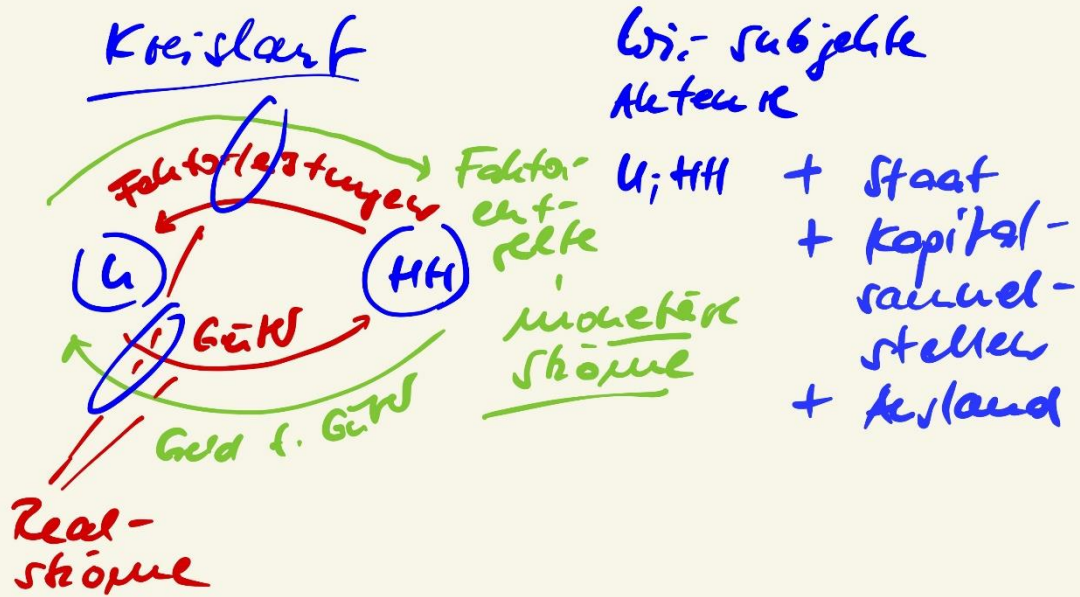 Kreislauf
Faktorleistungen
U
HH
Güter
Geld f. Güter
Real-
ströme
Faktor-
ent-
gelte
monetäre
Ströme
Wi.- subjekte
Akteure
U; HH + Staat
+ Kapital-
sammel-
stellen
+ Ausland